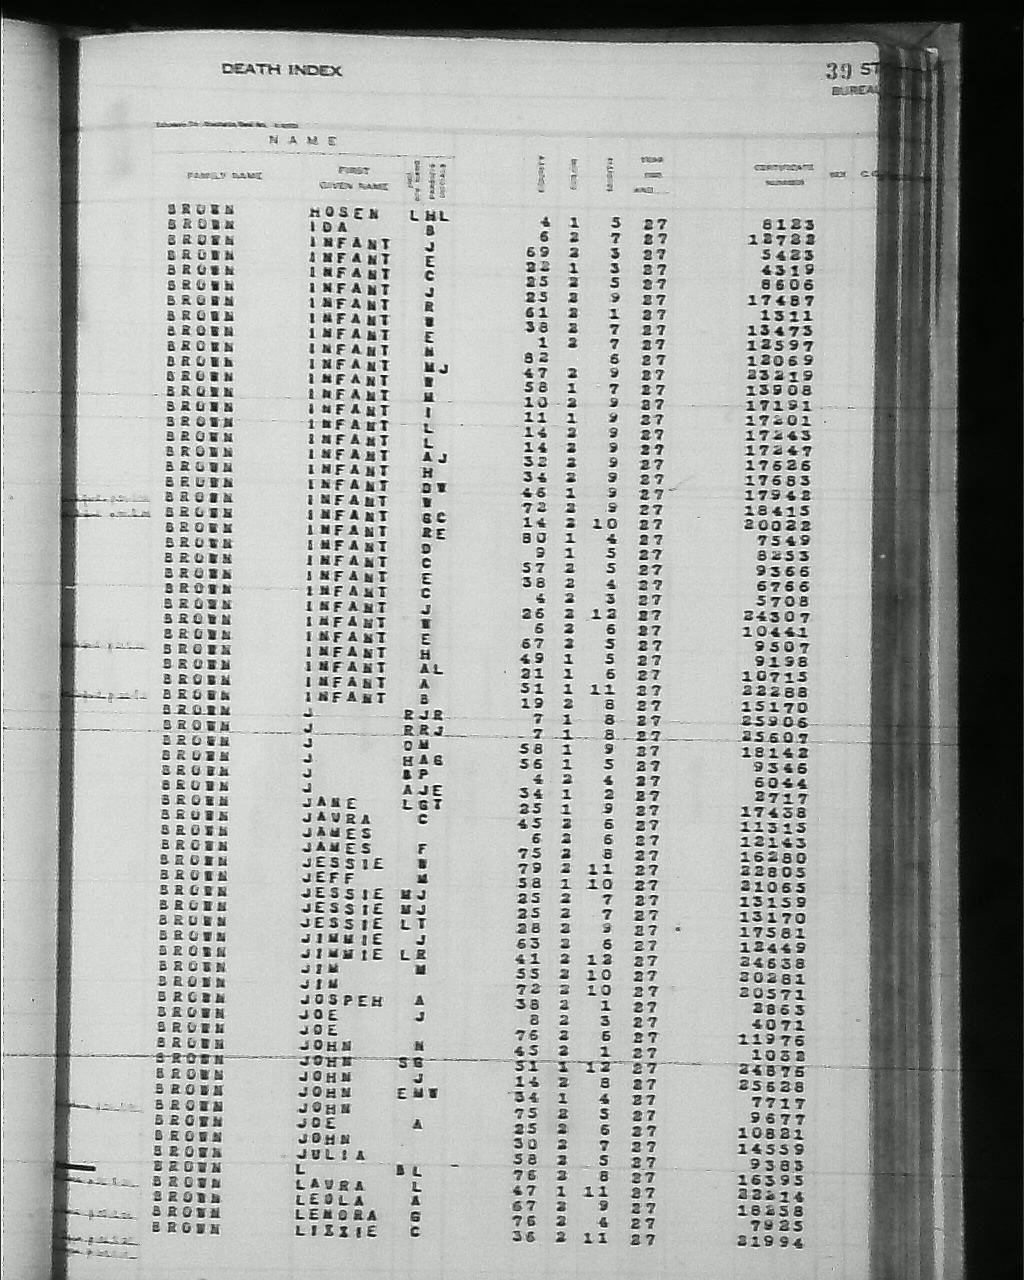 DEATH INDEX 39 ST
BUREAU
NAME
FAMILY NAME FIRST GIVEN NAME COUNTY COLOR MONTH YEAR CERTIFICATE NUMBER SEX
BROWN HOSEN L HL 4 1 5 27 8123
BROWN IDA B 6 2 7 27 12722
BROWN INFANT J 69 2 3 27 5423
BROWN INFANT E 22 1 3 27 4319
BROWN INFANT C 25 2 5 27 8606
BROWN INFANT J 25 2 9 27 17487
BROWN INFANT R 61 2 1 27 1311
BROWN INFANT W 38 2 7 27 13473
BROWN INFANT E 1 2 7 27 12597
BROWN INFANT N 82 6 27 12069
BROWN INFANT MJ 47 2 9 27 23219
BROWN INFANT W 58 1 7 27 13908
BROWN INFANT M 10 2 9 27 17191
BROWN INFANT I 11 1 9 27 17201
BROWN INFANT L 14 2 9 27 17243
BROWN INFANT L 14 2 9 27 17247
BROWN INFANT AJ 32 2 9 27 17626
BROWN INFANT H 34 2 9 27 17683
BROWN INFANT DW 46 1 9 27 17942
BROWN INFANT W 72 2 9 27 18415
BROWN INFANT GC 14 2 10 27 20022
BROWN INFANT RE 80 1 4 27 7549
BROWN INFANT D 9 1 5 27 8253
BROWN INFANT C 57 2 5 27 9366
BROWN INFANT E 38 2 4 27 6766
BROWN INFANT C 4 2 3 27 5708
BROWN INFANT J 26 2 12 27 24307
BROWN INFANT W 6 2 6 27 10441
BROWN INFANT E 67 2 5 27 9507
BROWN INFANT H 49 1 5 27 9198
BROWN INFANT AL 21 1 6 27 10715
BROWN INFANT A 51 1 11 27 22288
BROWN INFANT B 19 2 8 27 15170
BROWN J R JR 7 1 8 27 25906
BROWN J R RJ 7 1 8 27 25607
BROWN J O M 58 1 9 27 18142
BROWN J H AG 56 1 5 27 9346
BROWN J B P 4 2 4 27 6044
BROWN J A JE 34 1 2 27 2717
BROWN JANE L GT 25 1 9 27 17438
BROWN JAURA C 45 2 6 27 11315
BROWN JAMES 6 2 6 27 12143
BROWN JAMES F 75 2 8 27 16280
BROWN JESSIE W 79 2 11 27 22805
BROWN JEFF M 58 1 10 27 21065
BROWN JESSIE M J 25 2 7 27 13159
BROWN JESSIE M J 25 2 7 27 13170
BROWN JESSIE L T 28 2 9 27 17581
BROWN JIMMIE J 63 2 6 27 12449
BROWN JIMMIE L R 41 2 12 27 24638
BROWN JIM M 55 2 10 27 20281
BROWN JIM 72 2 10 27 20571
BROWN JOSPEH A 38 2 1 27 2863
BROWN JOE J 8 2 3 27 4071
BROWN JOE 76 2 6 27 11976
BROWN JOHN N 45 2 1 27 1032
BROWN JOHN S G 51 1 12 27 24876
BROWN JOHN J 14 2 8 27 25628
BROWN JOHN E MW 34 1 4 27 7717
BROWN JOHN 75 2 5 27 9677
BROWN JOE A 25 2 6 27 10821
BROWN JOHN 30 2 7 27 14559
BROWN JULIA 58 2 5 27 9383
BROWN L B L 76 2 8 27 16395
BROWN LAURA L 47 1 11 27 22214
BROWN LEOLA A 67 2 9 27 18258
BROWN LENORA G 76 2 4 27 7925
BROWN LIZZIE C 36 2 11 27 21994